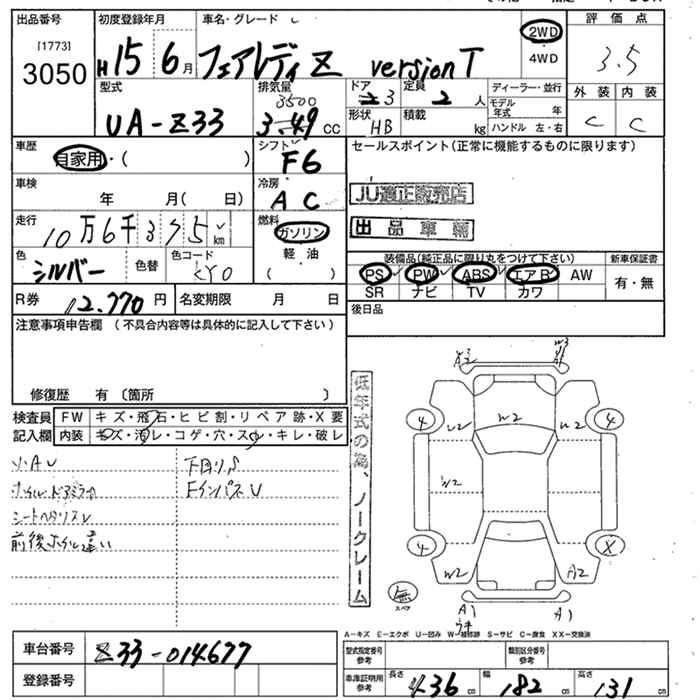 出品番号
[1773]
3050
初度登録年月
H15 6月
車名・グレード
フェアレディZ versionT
2WD
4WD
評価点
3.5
型式
UA-Z33
排気量
3500
3.49 cc
ドア
3
形状
HB
定員
2 人
積載
kg
ディーラー・並行
モデル年式 年
ハンドル 左・右
外装 内装
C C
車歴
自家用・( )
シフト
F6
車検
年 月( 日)
冷房
AC
走行
10万6千375km
燃料
ガソリン
軽油
( )
色
シルバー
色替
色コード
KY0
R券
12,770円
名変期限 月 日
セールスポイント(正常に機能するものに限ります)
JU適正販売店
出品車輌
装備品(純正品に限り丸をつけて下さい)
新車保証書
PS PW ABS エアB AW
SR ナビ TV カワ
有・無
後日品
注意事項申告欄 (不具合内容等は具体的に記入して下さい)
修復歴 有 〔箇所 〕
検査員記入欄
FW キズ・飛石・ヒビ割・リペア跡・X要
内装 キズ・汚レ・コゲ・穴・スレ・キレ・破レ
シートヘタリスレ
前後ホイル違い
下回りS
Fインパネ
低年式の為、ノークレーム
W2
W2
W2
W2
W2
A2
4
4
4
X
無
スペア
A1
A1
A-キズ E-エクボ U-凹み W-補修跡 S-サビ C-腐食 XX-交換済
車台番号
Z33-014677
登録番号
型式指定番号
参考
類別区分番号
参考
車庫証明用
参考
長さ 436 cm
幅 182 cm
高さ 131 cm